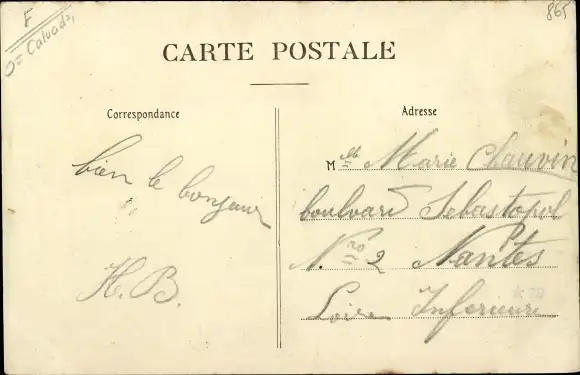 F
Dt Calvados,
865
CARTE POSTALE
Correspondance
Adresse
bien le bonjour
H. B.
Mlle Marie Chauvin
boulvard Sebastopol
N.ro 2 Nantes
Loire Inferieure